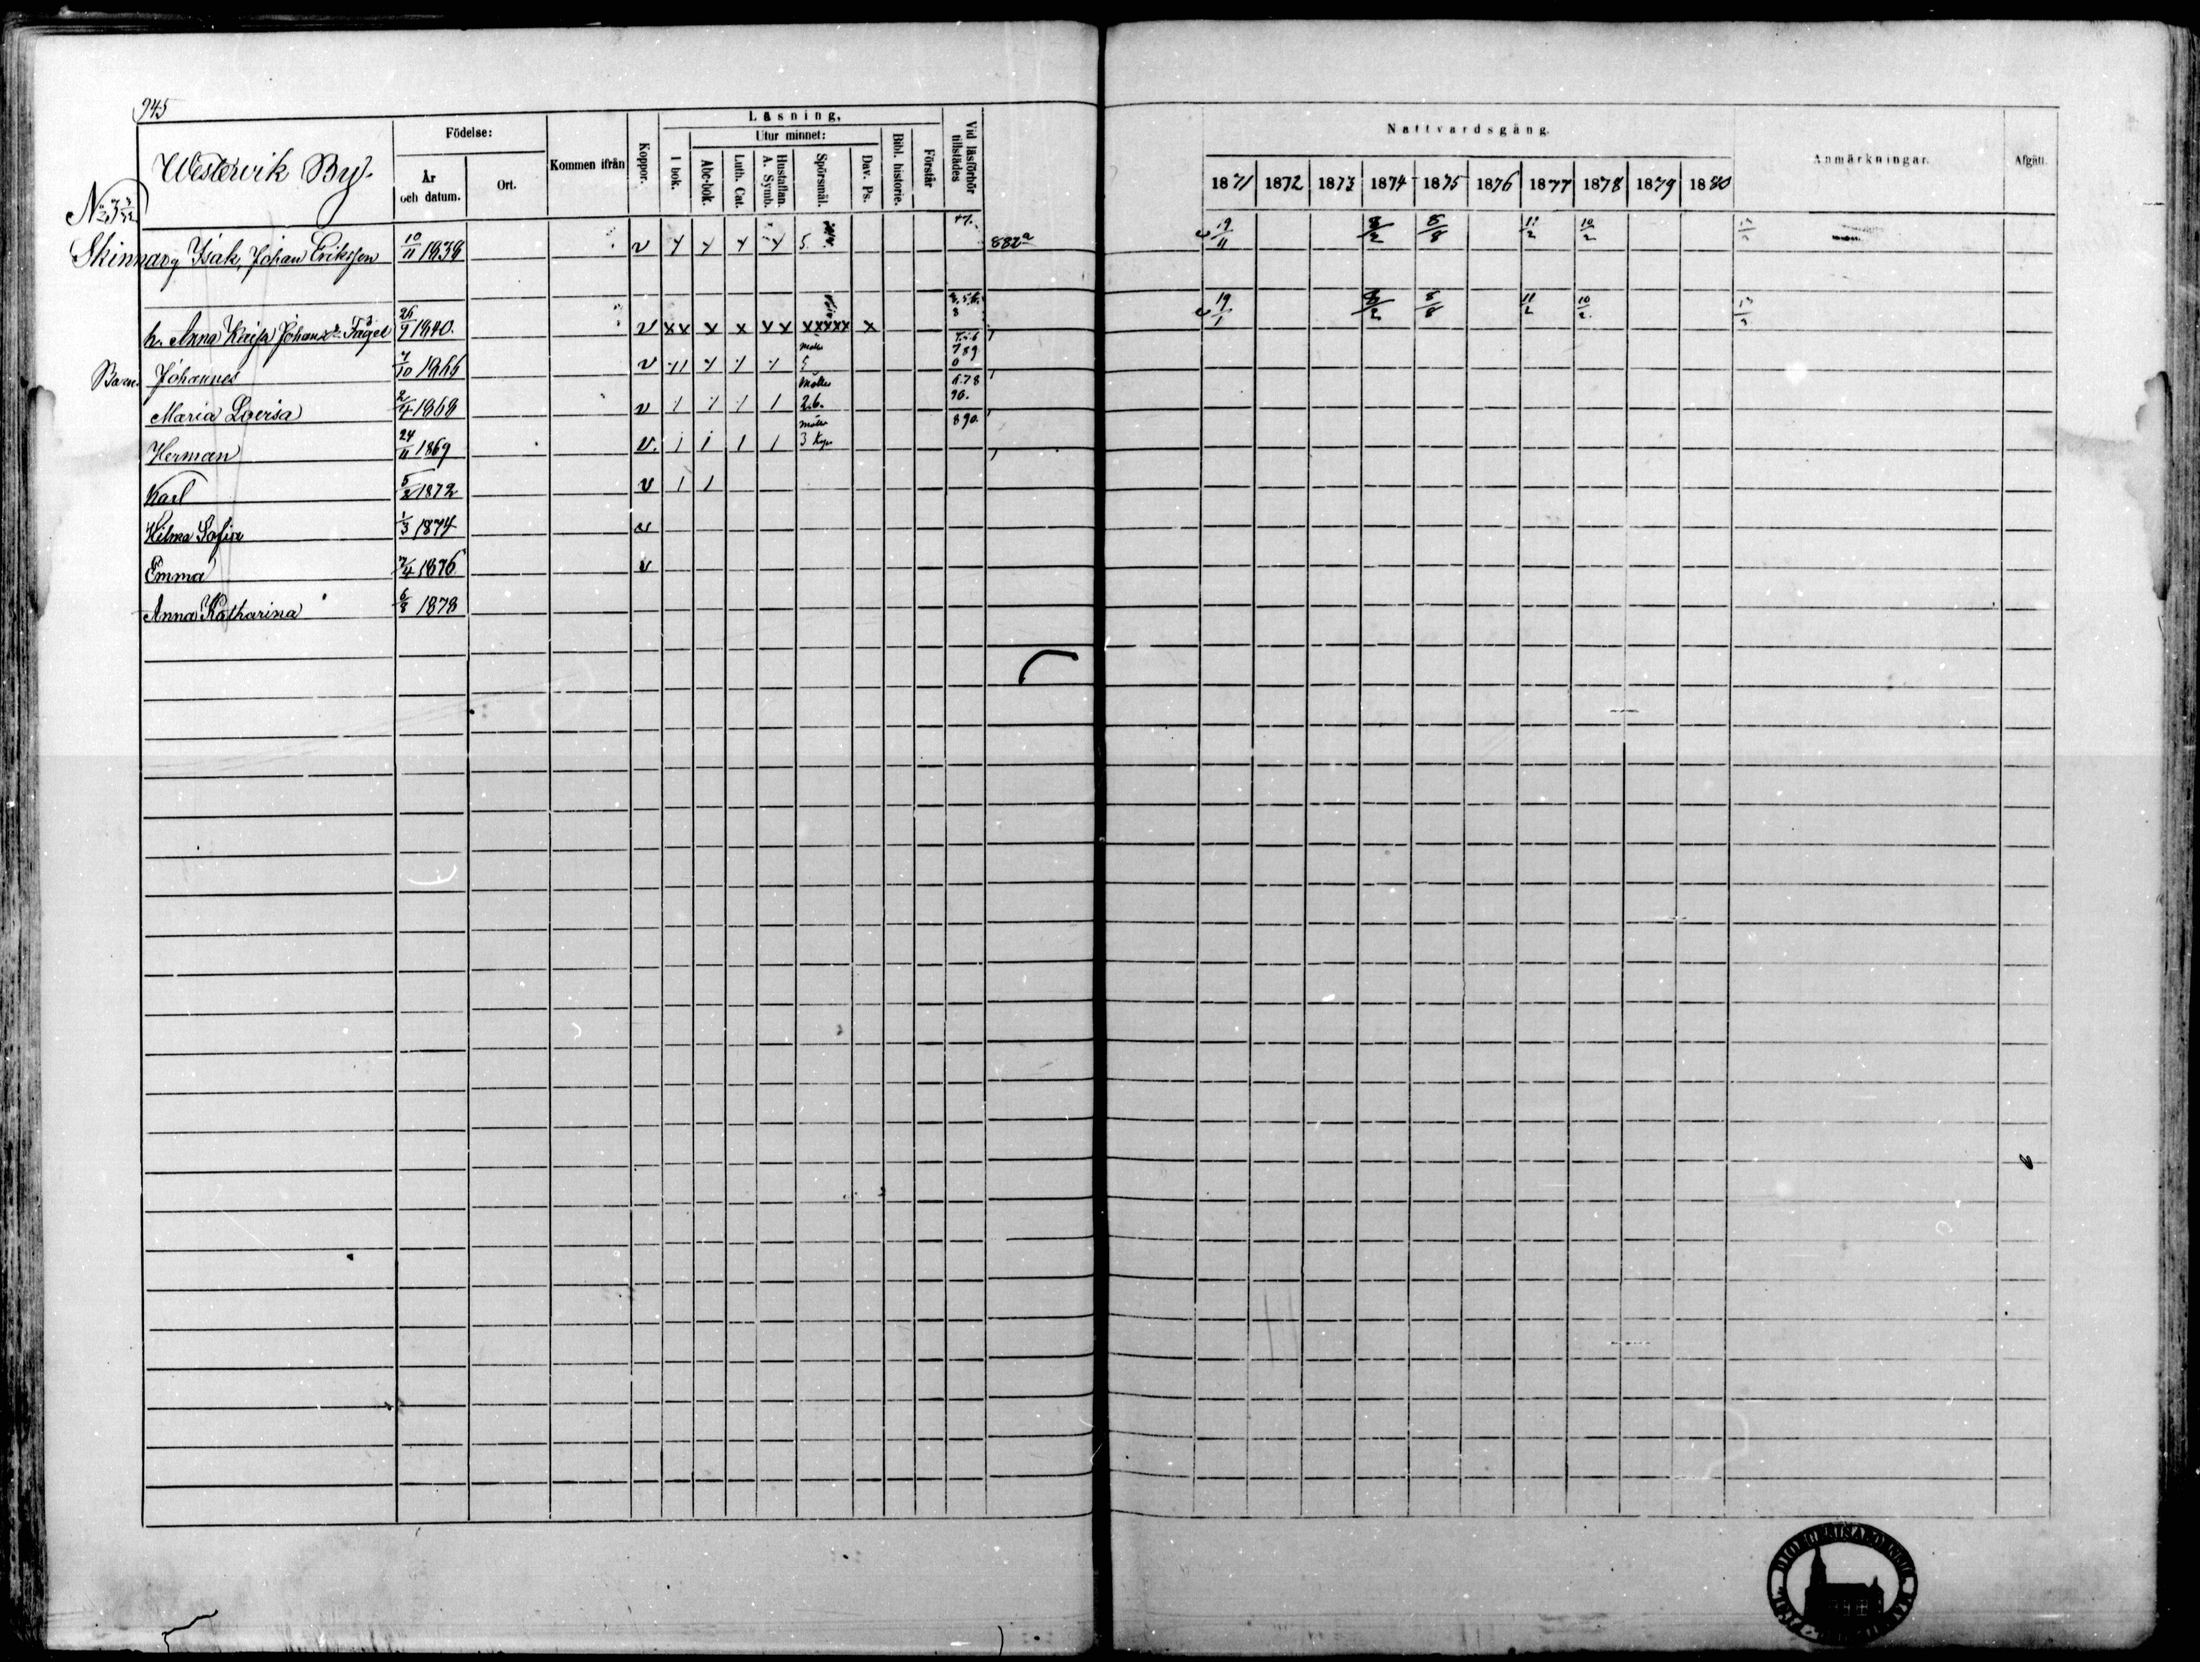 945
Westervik By.
Födelse:
År och datum.
Ort.
Kommen ifrån
Koppor.
Läsning,
I bok.
Utur minnet:
Abc-bok.
Luth. Cat.
Hustaflan. A. Symb.
Spörsmål.
Dav. Ps.
Bibl. historie.
Förstår
Vid läsförhör tillstädes
Nattvardsgång.
1871 1872 1873 1874 1875 1876 1877 1878 1879 1880
Anmärkningar.
Afgått.
Skinnarg Isak, Johan Eriksson 10/11 1838 v 5. 882a 19/11 8/2 8/8 11/2 10/2
h. Anna Kaisa Johansdr Fågel 26/9 1840. v xx x x xx xxxxx x 8/2 8/8 11/2 10/2
Barn. Johannes 7/10 1866 v 5
Maria Lovisa 2/4 1868 v 2.6.
Herman 24/11 1869 v. 3 890.
Karl 5/2 1872 v
Hilma Sofia 1/3 1874 v
Emma 1876 v
Anna Katharina 6/8 1878